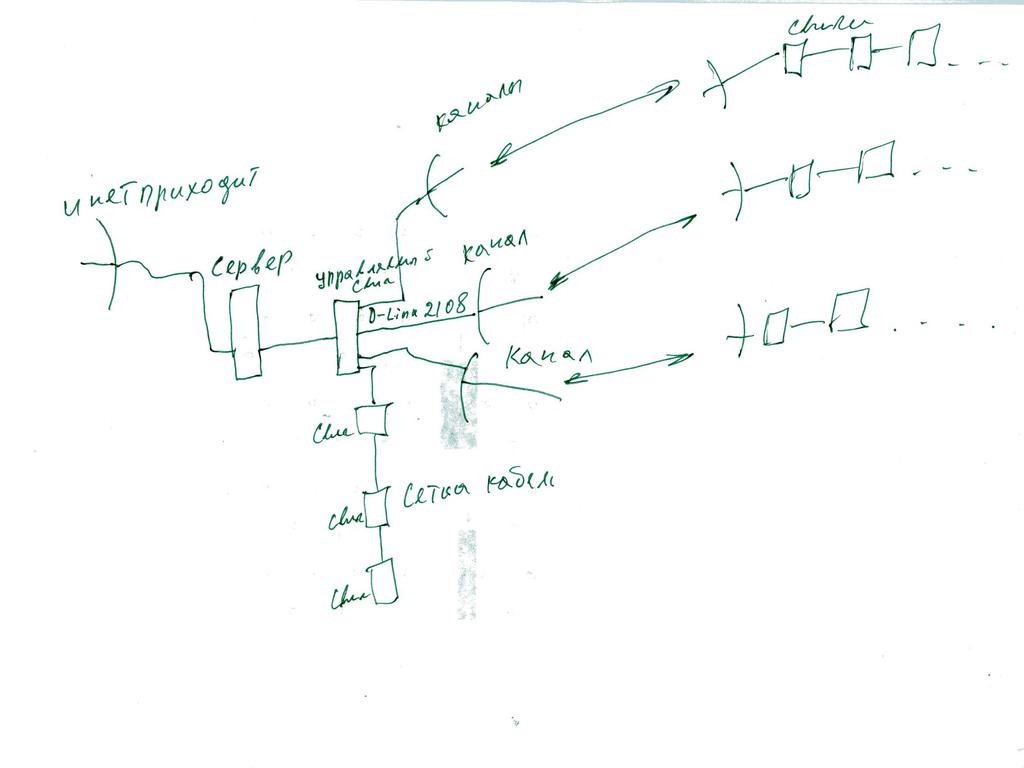 свичи
каналы
инет приходит
сервер
управляемый
свич
D-Link 2108
канал
канал
свич
свич
сетка кабель
свич